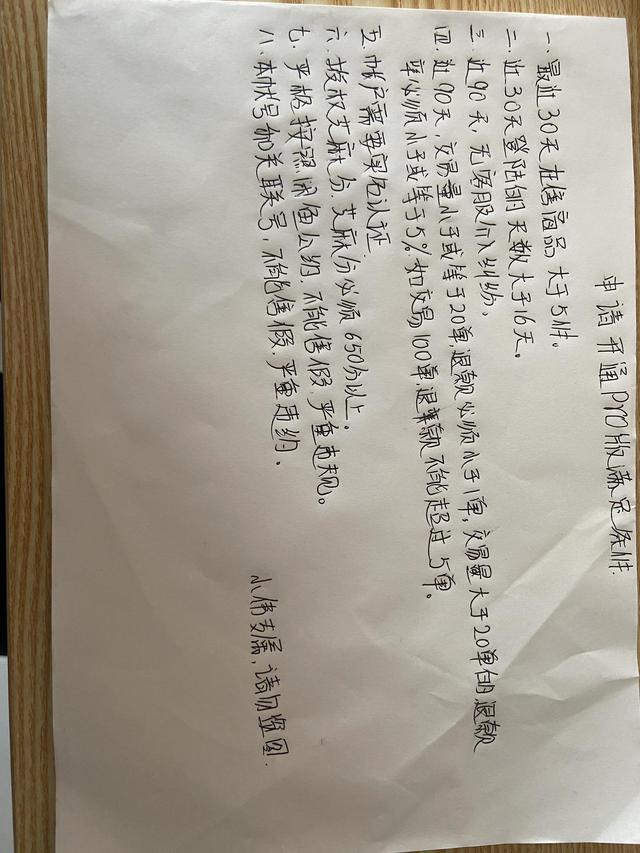 申请开通Pro版满足条件.
一、最近30天在售商品大于5件。
二、近30天登陆的天数大于16天。
三、近90天,无客服介入纠纷、
四、近90天,交易量小于或等于20单,退款必须小于1单,交易量大于20单的退款
率必须小于或等于5%.如交易100单,退款不能超过5单。
五、帐户需要实名认证
六、授权芝麻分.芝麻分必须650分以上。
七、严格按照闲鱼公约.不能售假.严重违规。
八、本帐号和关联号,不能售假.严重违约.
小伟专属,请勿盗图.